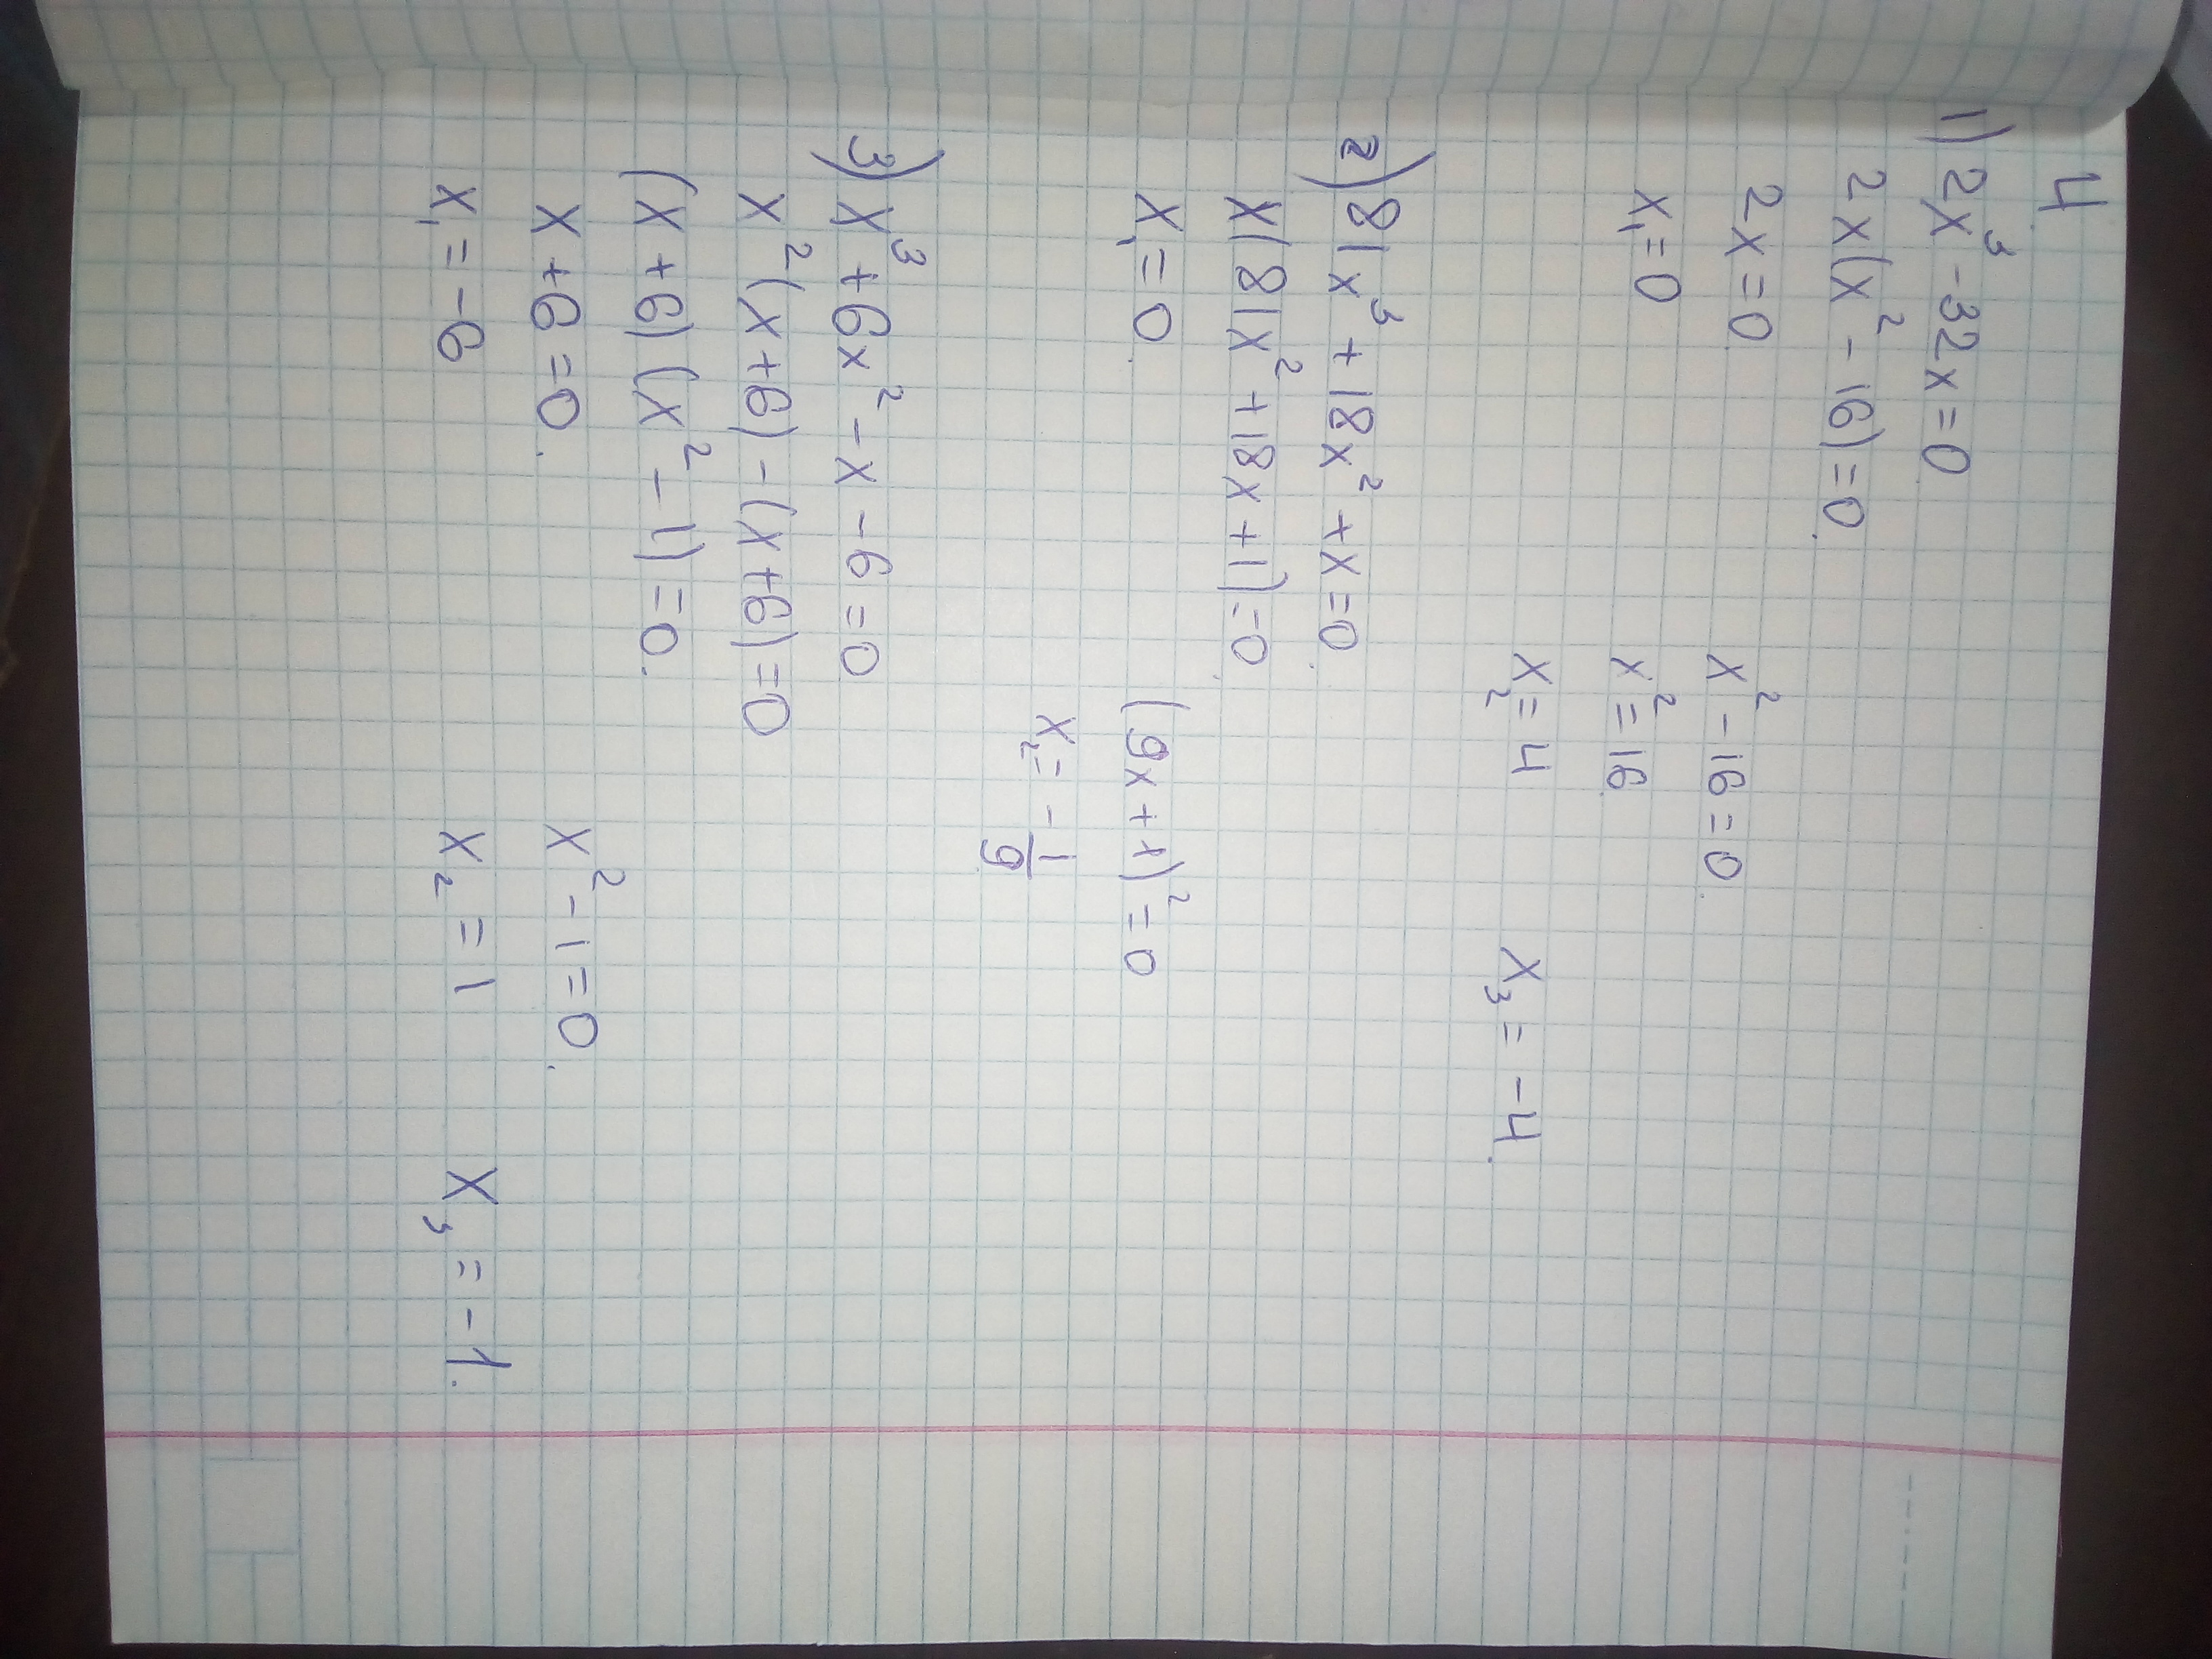 4
1) 2x³ - 32x = 0
2x(x² - 16) = 0.
2x = 0 x² - 16 = 0.
x₁ = 0 x² = 16
x₂ = 4 x₃ = -4.
2) 81x³ + 18x² + x = 0.
x(81x² + 18x + 1) = 0
x₁ = 0. (9x + 1)² = 0
x₂ = - 1/9
3) x³ + 6x² - x - 6 = 0
x²(x + 6) - (x + 6) = 0
(x + 6)(x² - 1) = 0.
x + 6 = 0. x² - 1 = 0.
x₁ = -6 x₂ = 1 x₃ = -1.